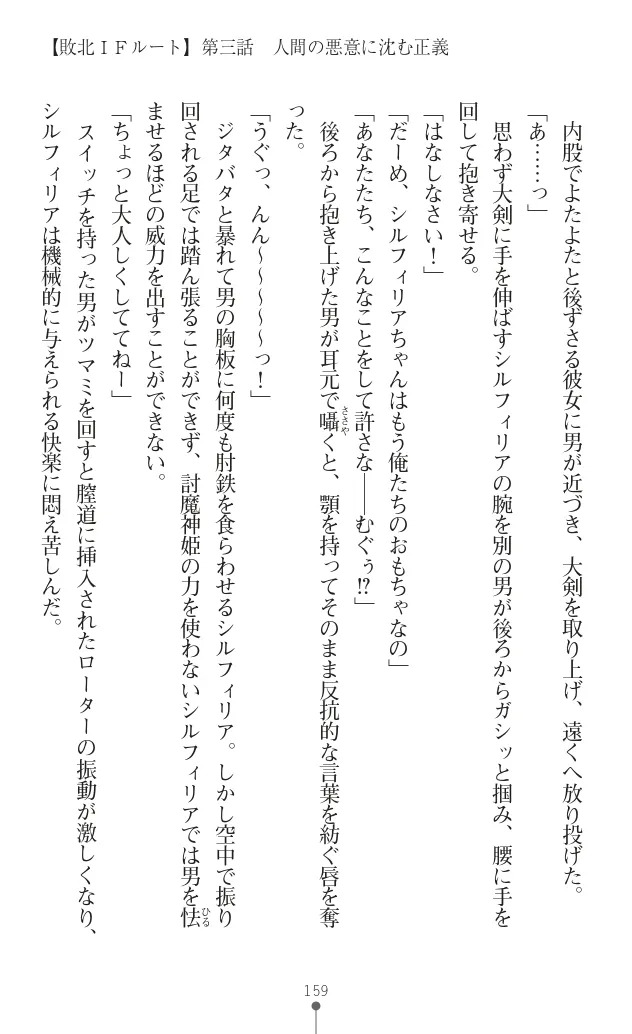 【敗北ＩＦルート】第三話　人間の悪意に沈む正義
　内股でよたよたと後ずさる彼女に男が近づき、大剣を取り上げ、遠くへ放り投げた。
「あ……っ」
　思わず大剣に手を伸ばすシルフィリアの腕を別の男が後ろからガシッと掴み、腰に手を
回して抱き寄せる。
「はなしなさい！」
「だーめ、シルフィリアちゃんはもう俺たちのおもちゃなの」
「あなたたち、こんなことをして許さな――むぐぅ!?」
　後ろから抱き上げた男が耳元で囁くと、顎を持ってそのまま反抗的な言葉を紡ぐ唇を奪
った。
「うぐっ、んん～～～～～っ！」
　ジタバタと暴れて男の胸板に何度も肘鉄を食らわせるシルフィリア。しかし空中で振り
回される足では踏ん張ることができず、討魔神姫の力を使わないシルフィリアでは男を怯
ませるほどの威力を出すことができない。
「ちょっと大人しくしててねー」
　スイッチを持った男がツマミを回すと膣道に挿入されたローターの振動が激しくなり、
シルフィリアは機械的に与えられる快楽に悶え苦しんだ。
ささや
ひる
159